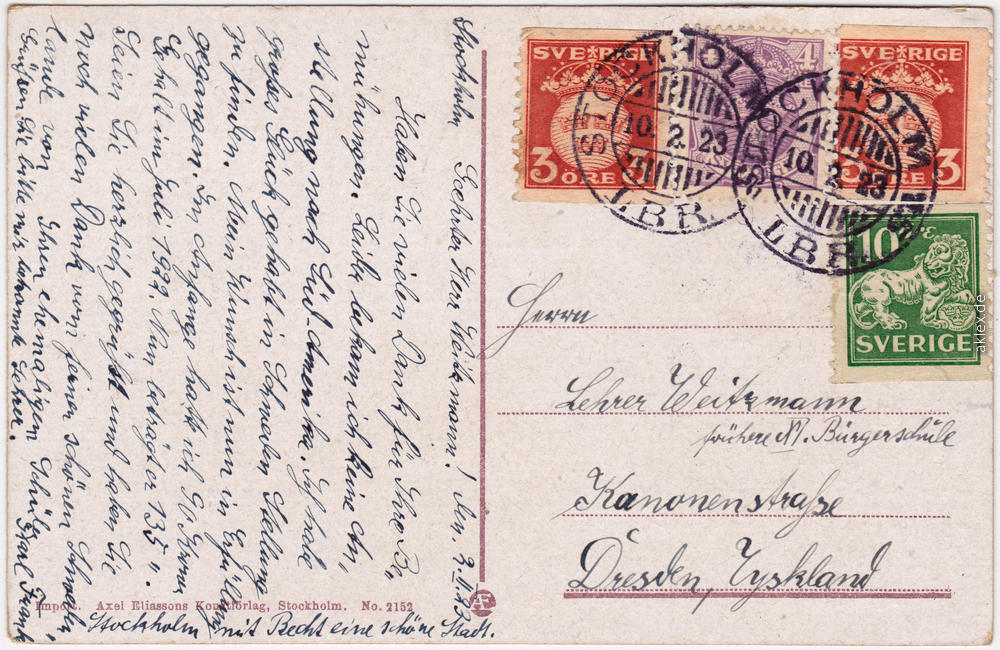 Stockholm den 9.II.23
Geehrter Herr Weitzmann!
Haben Sie vielen Dank für Ihre Be-
mühungen. Leider bekam ich keine An-
stellung nach Süd Amerika. Ich habe
großes Glück gehabt in Schweden Stellung
zu finden. Mein Wunsch ist nun in Erfüllung
gegangen. Im Anfange hatte ich 90 Kronen
Gehalt im Juli 1922. Nun beträgt er 135 ".
Seien Sie herzlich gegrüßt und haben Sie
noch vielen Dank vom ferner schönen Schweden
lande von Ihren ehemaligen Schüler
Grüßen Sie bitte mir bekannte Lehrer.
Stockholm mit Recht eine schöne Stadt.
Import. Axel Eliassons Konstförlag, Stockholm. No. 2152
SVERIGE
3 ÖRE
4
SVERIGE
3
STOCKHOLM
10. 2. 23
LBR.
STOCKHOLM
10. 2. 23
LBR.
10
SVERIGE
Herrn
Lehrer Weitzmann
frühere XI. Bürgerschule
Kanonenstraße
Dresden, Tyskland
aklex.de